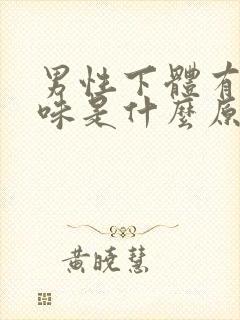 男性下體有
味是什麼原
黃曉慧